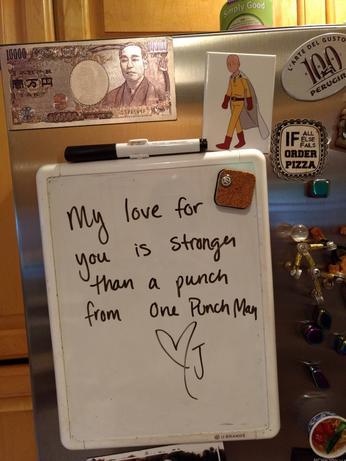 Simply Good
10000
10000
壱万円
L'ARTE DEL GUSTO
100
PERUGIA
IF ALL
ELSE
FAILS
ORDER
PIZZA
My love for
you is stronger
than a punch
from One Punch Man
J
U BRANDS